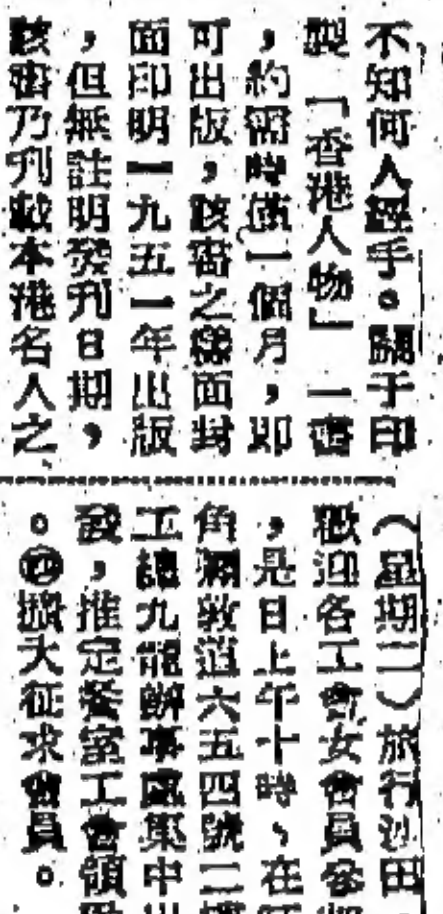 不知何人經手。關于印
製「香港人物」一書
，約需時僅一個月，即
可出版，該書之樣面封
面印明一九五一年出版
，但無註明發刊日期，
該書乃刊載本港名人之
（星期二）旅行沙田
歡迎各工會女會員參
，是日上午十時、在
角彌敦道六五四號二樓
工總九龍辦事處集中
，推定餐室工會領
。擴大征求會員。